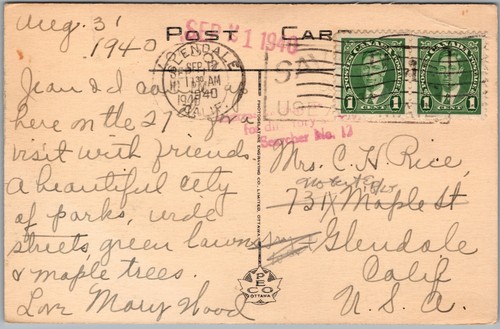 POST CARD
Aug. 31
1940
SEP 11 1940
GLENDALE
SEP 12
AM
1940
CALIF.
POSTES CANADA POSTAGE
1 1
POSTES CANADA POSTAGE
1 1
Searcher No. 13
Jean & I
here on the 27 for a
visit with friends.
A beautiful city
of parks, wide
streets, green lawns
& maple trees.
Love Mary Wood
Mrs. C. H. Rice,
731 Maple St
Glendale
Calif
U. S. A.
PECO
OTTAWA